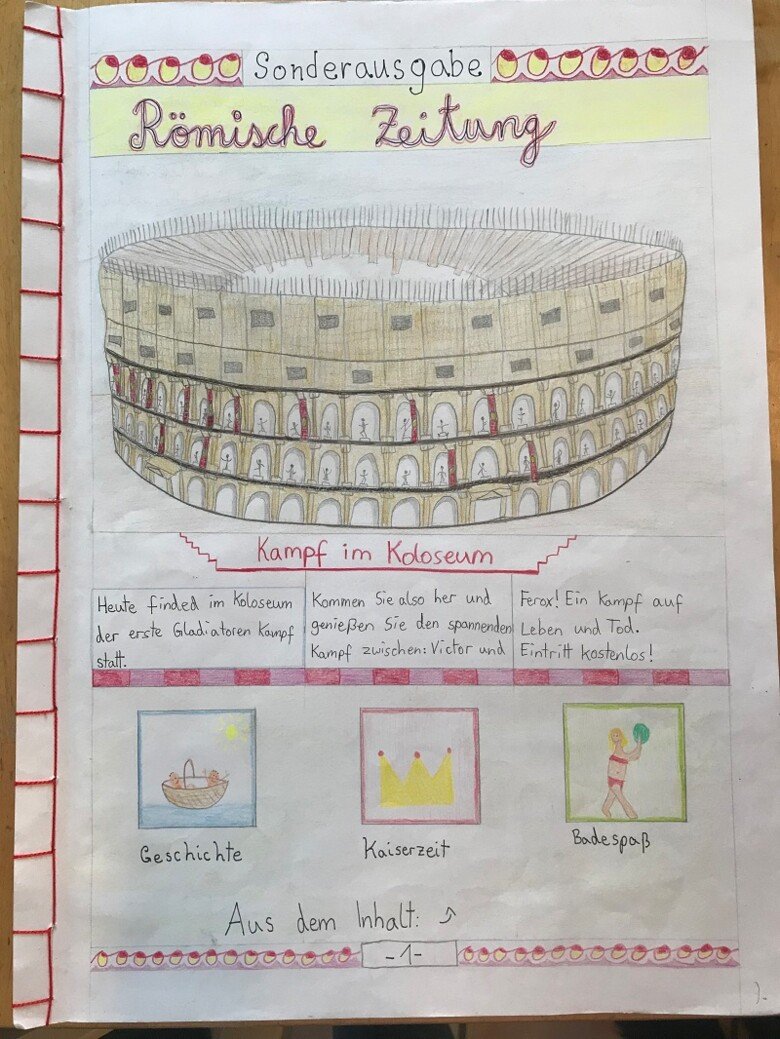 Sonderausgabe
Römische Zeitung
Kampf im Koloseum
Heute finded im Koloseum
der erste Gladiatoren Kampf
statt.
Kommen Sie also her und
genießen Sie den spannenden
Kampf zwischen: Victor und
Ferox! Ein Kampf auf
Leben und Tod.
Eintritt kostenlos!
Geschichte
Kaiserzeit
Badespaß
Aus dem Inhalt:
-1-